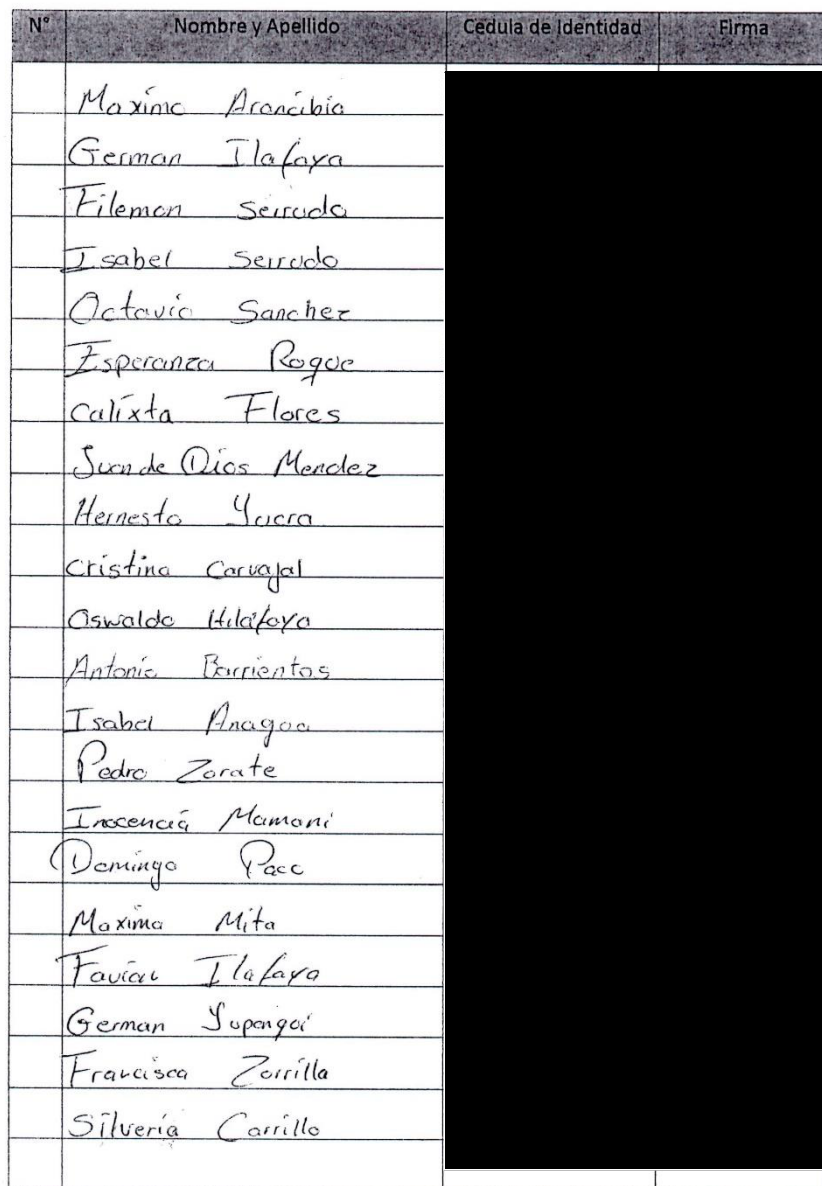 N° Nombre y Apellido Cedula de Identidad Firma
Maximo Arancibia
German Ilafaya
Filemon Serrudo
Isabel Serrudo
Octavio Sanchez
Esperanza Roque
Calixta Flores
Juan de Dios Mendez
Hernesto Yucra
Cristina Carvajal
Oswaldo Hilafaya
Antonio Barrientos
Isabel Anagua
Pedro Zarate
Inocencia Mamani
Domingo Paco
Maxima Mita
Favian Ilafaya
German Yupanqui
Francisca Zorrilla
Silveria Carrillo